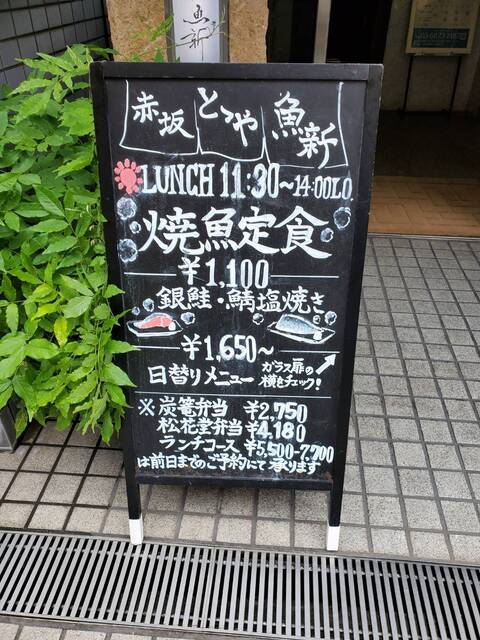 魚新
赤坂 とゝや 魚新
LUNCH 11:30~14:00L.O.
焼魚定食
¥1,100
銀鮭・鯖塩焼き
¥1,650~
日替りメニュー
ガラス扉の
横をチェック!
※炭篭弁当 ¥2,750
松花堂弁当 ¥4,180
ランチコース ¥5,500-7,700
は前日までのご予約にて承ります